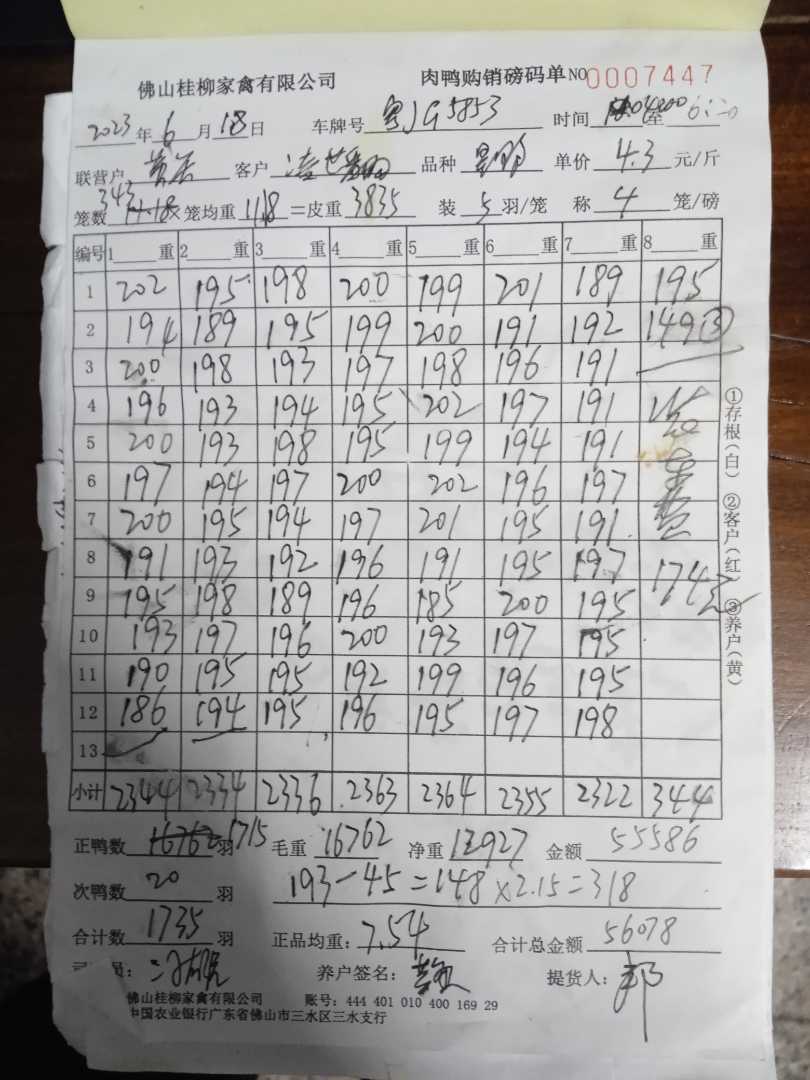 佛山桂柳家禽有限公司 肉鸭购销磅码单 NO 0007447
2023 年 6 月 18 日 车牌号 粤J95853 时间 至
联营户 客户 品种 单价 4.3 元/斤
笼数 343 ×笼均重 11.18 =皮重 3835 装 5 羽/笼 称 4 笼/磅
编号 1 重 2 重 3 重 4 重 5 重 6 重 7 重 8 重
1 202 195 198 200 199 201 189 195
2 194 189 195 199 200 191 192 149③
3 200 198 193 197 198 196 191
4 196 193 194 195 202 197 191
5 200 193 198 195 199 194 191
6 197 194 197 200 202 196 197
7 200 195 194 197 201 195 191
8 191 193 192 196 191 195 197
9 195 198 189 196 185 200 195
10 193 197 196 200 193 197 195
11 190 195 195 192 199 196 195
12 186 194 195 196 195 197 198
13
小计 2344 2334 2336 2363 2364 2355 2322 344
①存根(白) ②客户(红) ③养户(黄)
正鸭数 1715 羽 毛重 16762 净重 12927 金额 55586
次鸭数 20 羽 193-45=148×2.15=318
合计数 1735 羽 正品均重: 7.54 合计总金额 56078
员: 养户签名: 提货人:
佛山桂柳家禽有限公司 账号: 444 401 010 400 169 29
中国农业银行广东省佛山市三水区三水支行